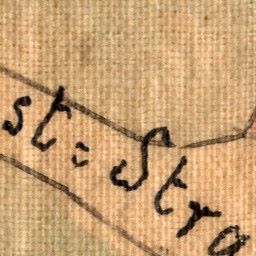 st: Stro